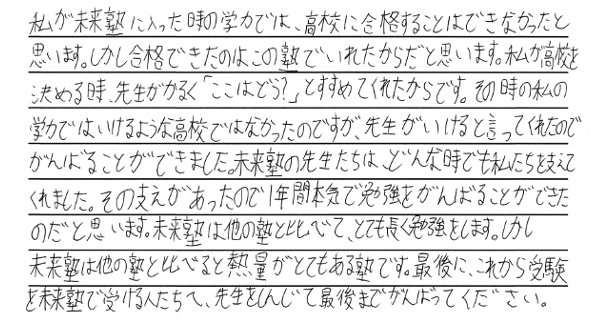 私が未来塾に入った時の学力では、高校に合格することはできなかったと
思います。しかし合格できたのはこの塾でいれたからだと思います。私が高校を
決める時、先生がかるく「ここはどう?」とすすめてくれたからです。その時の私の
学力ではいけるような高校ではなかったのですが、先生がいけると言ってくれたので
がんばることができました。未来塾の先生たちは、どんな時でも私たちを支えて
くれました。その支えがあったので1年間本気で勉強をがんばることができた
のだと思います。未来塾は他の塾と比べて、とても長く勉強をします。しかし
未来塾は他の塾と比べると熱量がとてもある塾です。最後に、これから受験
を未来塾で受ける人たちへ、先生をしんじて最後までがんばってください。